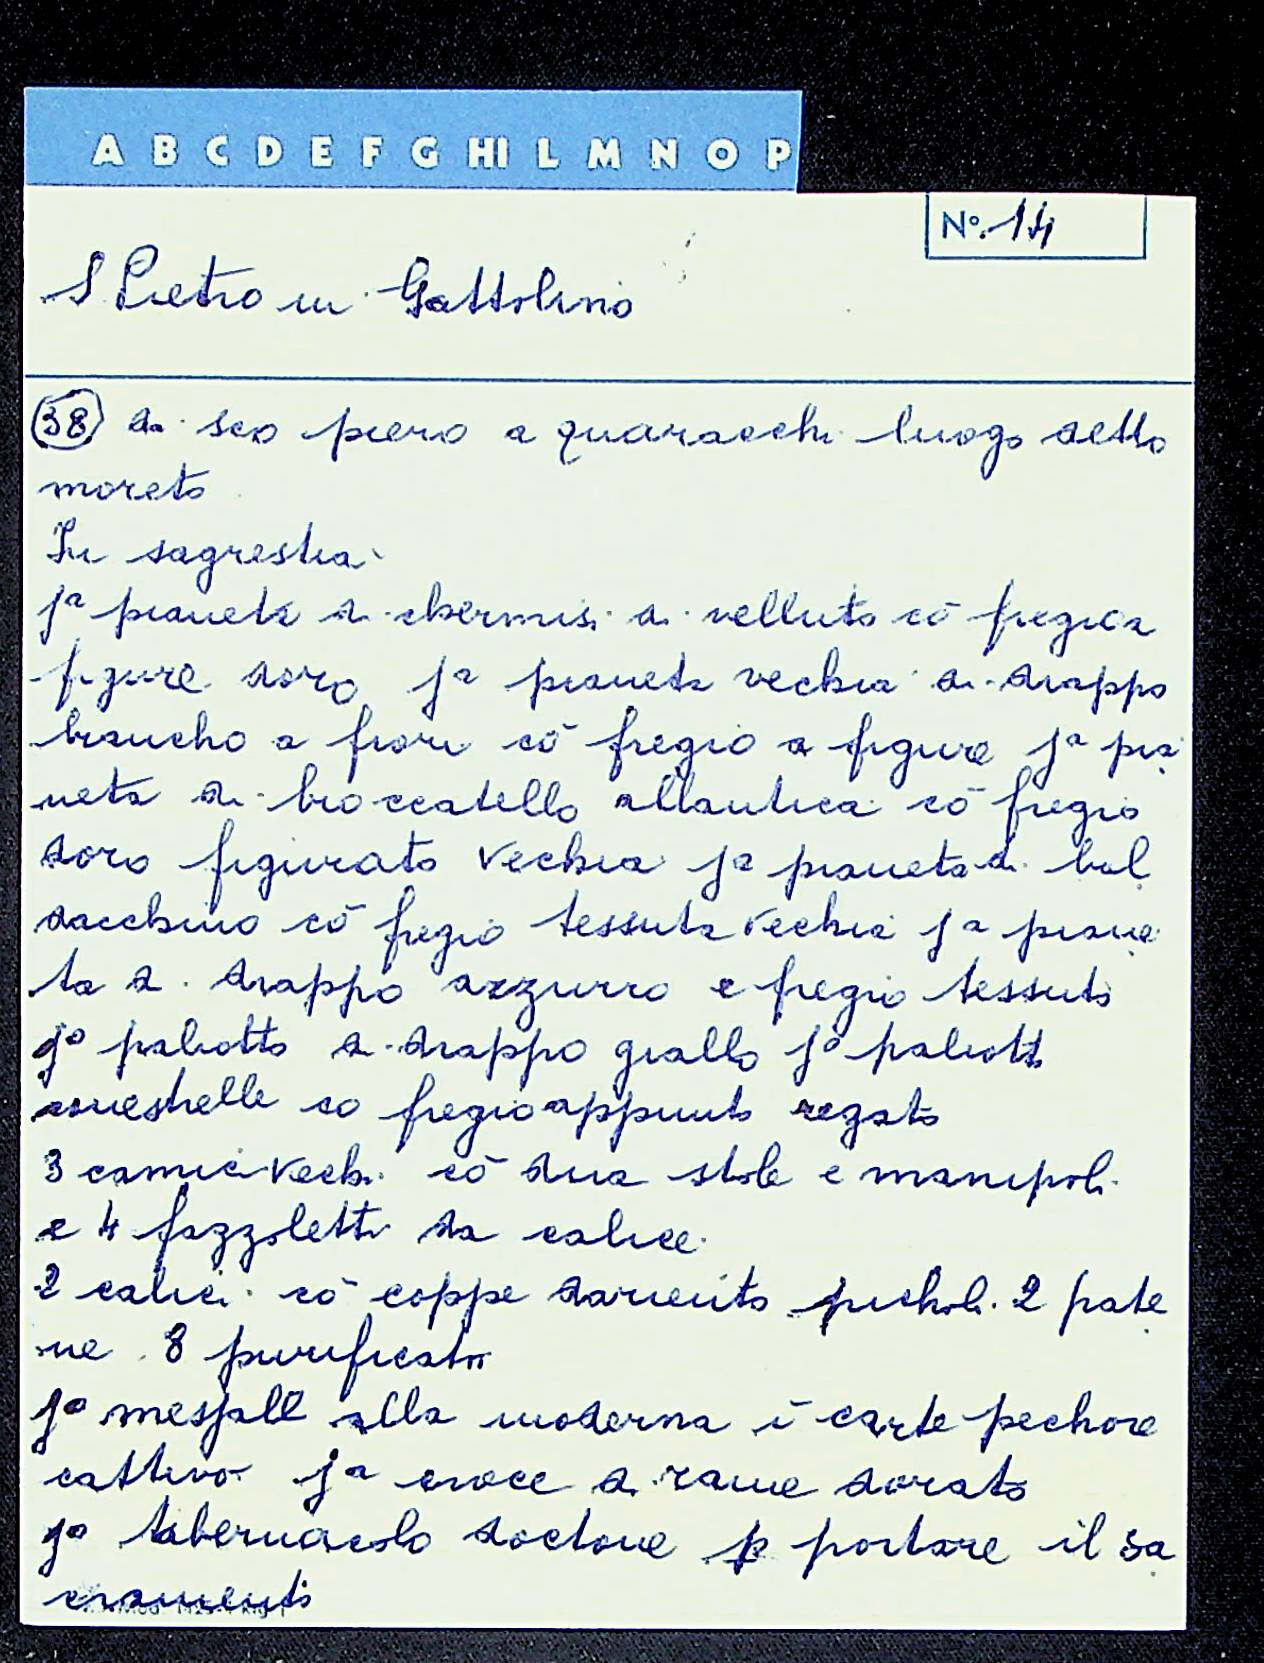 A B C D E F G HI L M N O P
Nº. 14
S Pietro in Gattolino
38 di sco piero a quaracchi luogo detto
moreto
In sagrestia
jª pianeta di chermisi di velluto cō fregio a
figure doro jª pianeta vechia di drappo
biancho a fiori cō fregio a figure jª pia
neta di broccatello allantica cō fregio
doro figurato vechia jª pianeta di bal
dacchino cō fregio tessuta vechia jª piane
ta di drappo azzurro e fregio tessuto
jº paliotto di drappo giallo jº paliotto
co fregio appunto regato
3 camici vechi cō dua stole e manipoli
e 4 fazzoletti da calice
2 calici cō coppe dariento picholi 2 pate
ne 8 purificatoi
jº messale alla moderna ī carte pechore
cattivo jª croce di rame dorato
jº tabernacolo doctone p portare il sa
cramento